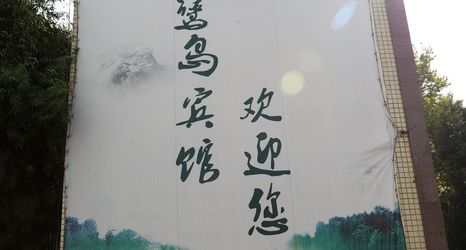 鹭岛宾馆
欢迎您